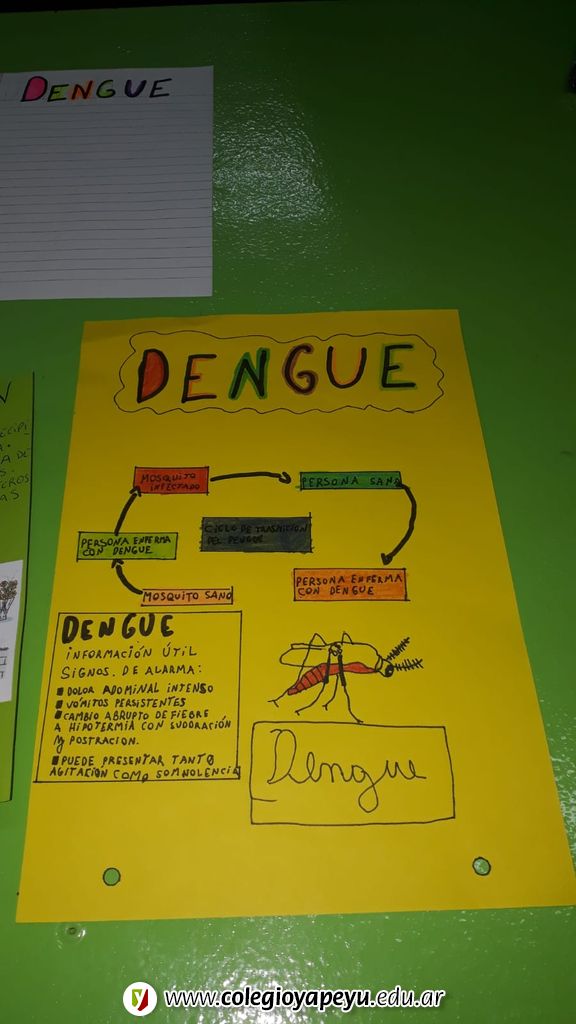 DENGUE
DENGUE
MOSQUITO
INFECTADO
PERSONA SANO
CICLO DE TRASMICION
DEL DENGUE
PERSONA ENFERMA
CON DENGUE
PERSONA ENFERMA
CON DENGUE
MOSQUITO SANO
DENGUE
INFORMACIÓN ÚTIL
SIGNOS. DE ALARMA:
DOLOR ADOMINAL INTENSO
VÓMITOS PERSISTENTES
CAMBIO ABRUPTO DE FIEBRE
A HIPOTERMIA CON SUDORACIÓN
Y POSTRACION.
PUEDE PRESENTAR TANTO
AGITACIÓN COMO SOMNOLENCIA
Dengue
www.colegioyapeyu.edu.ar